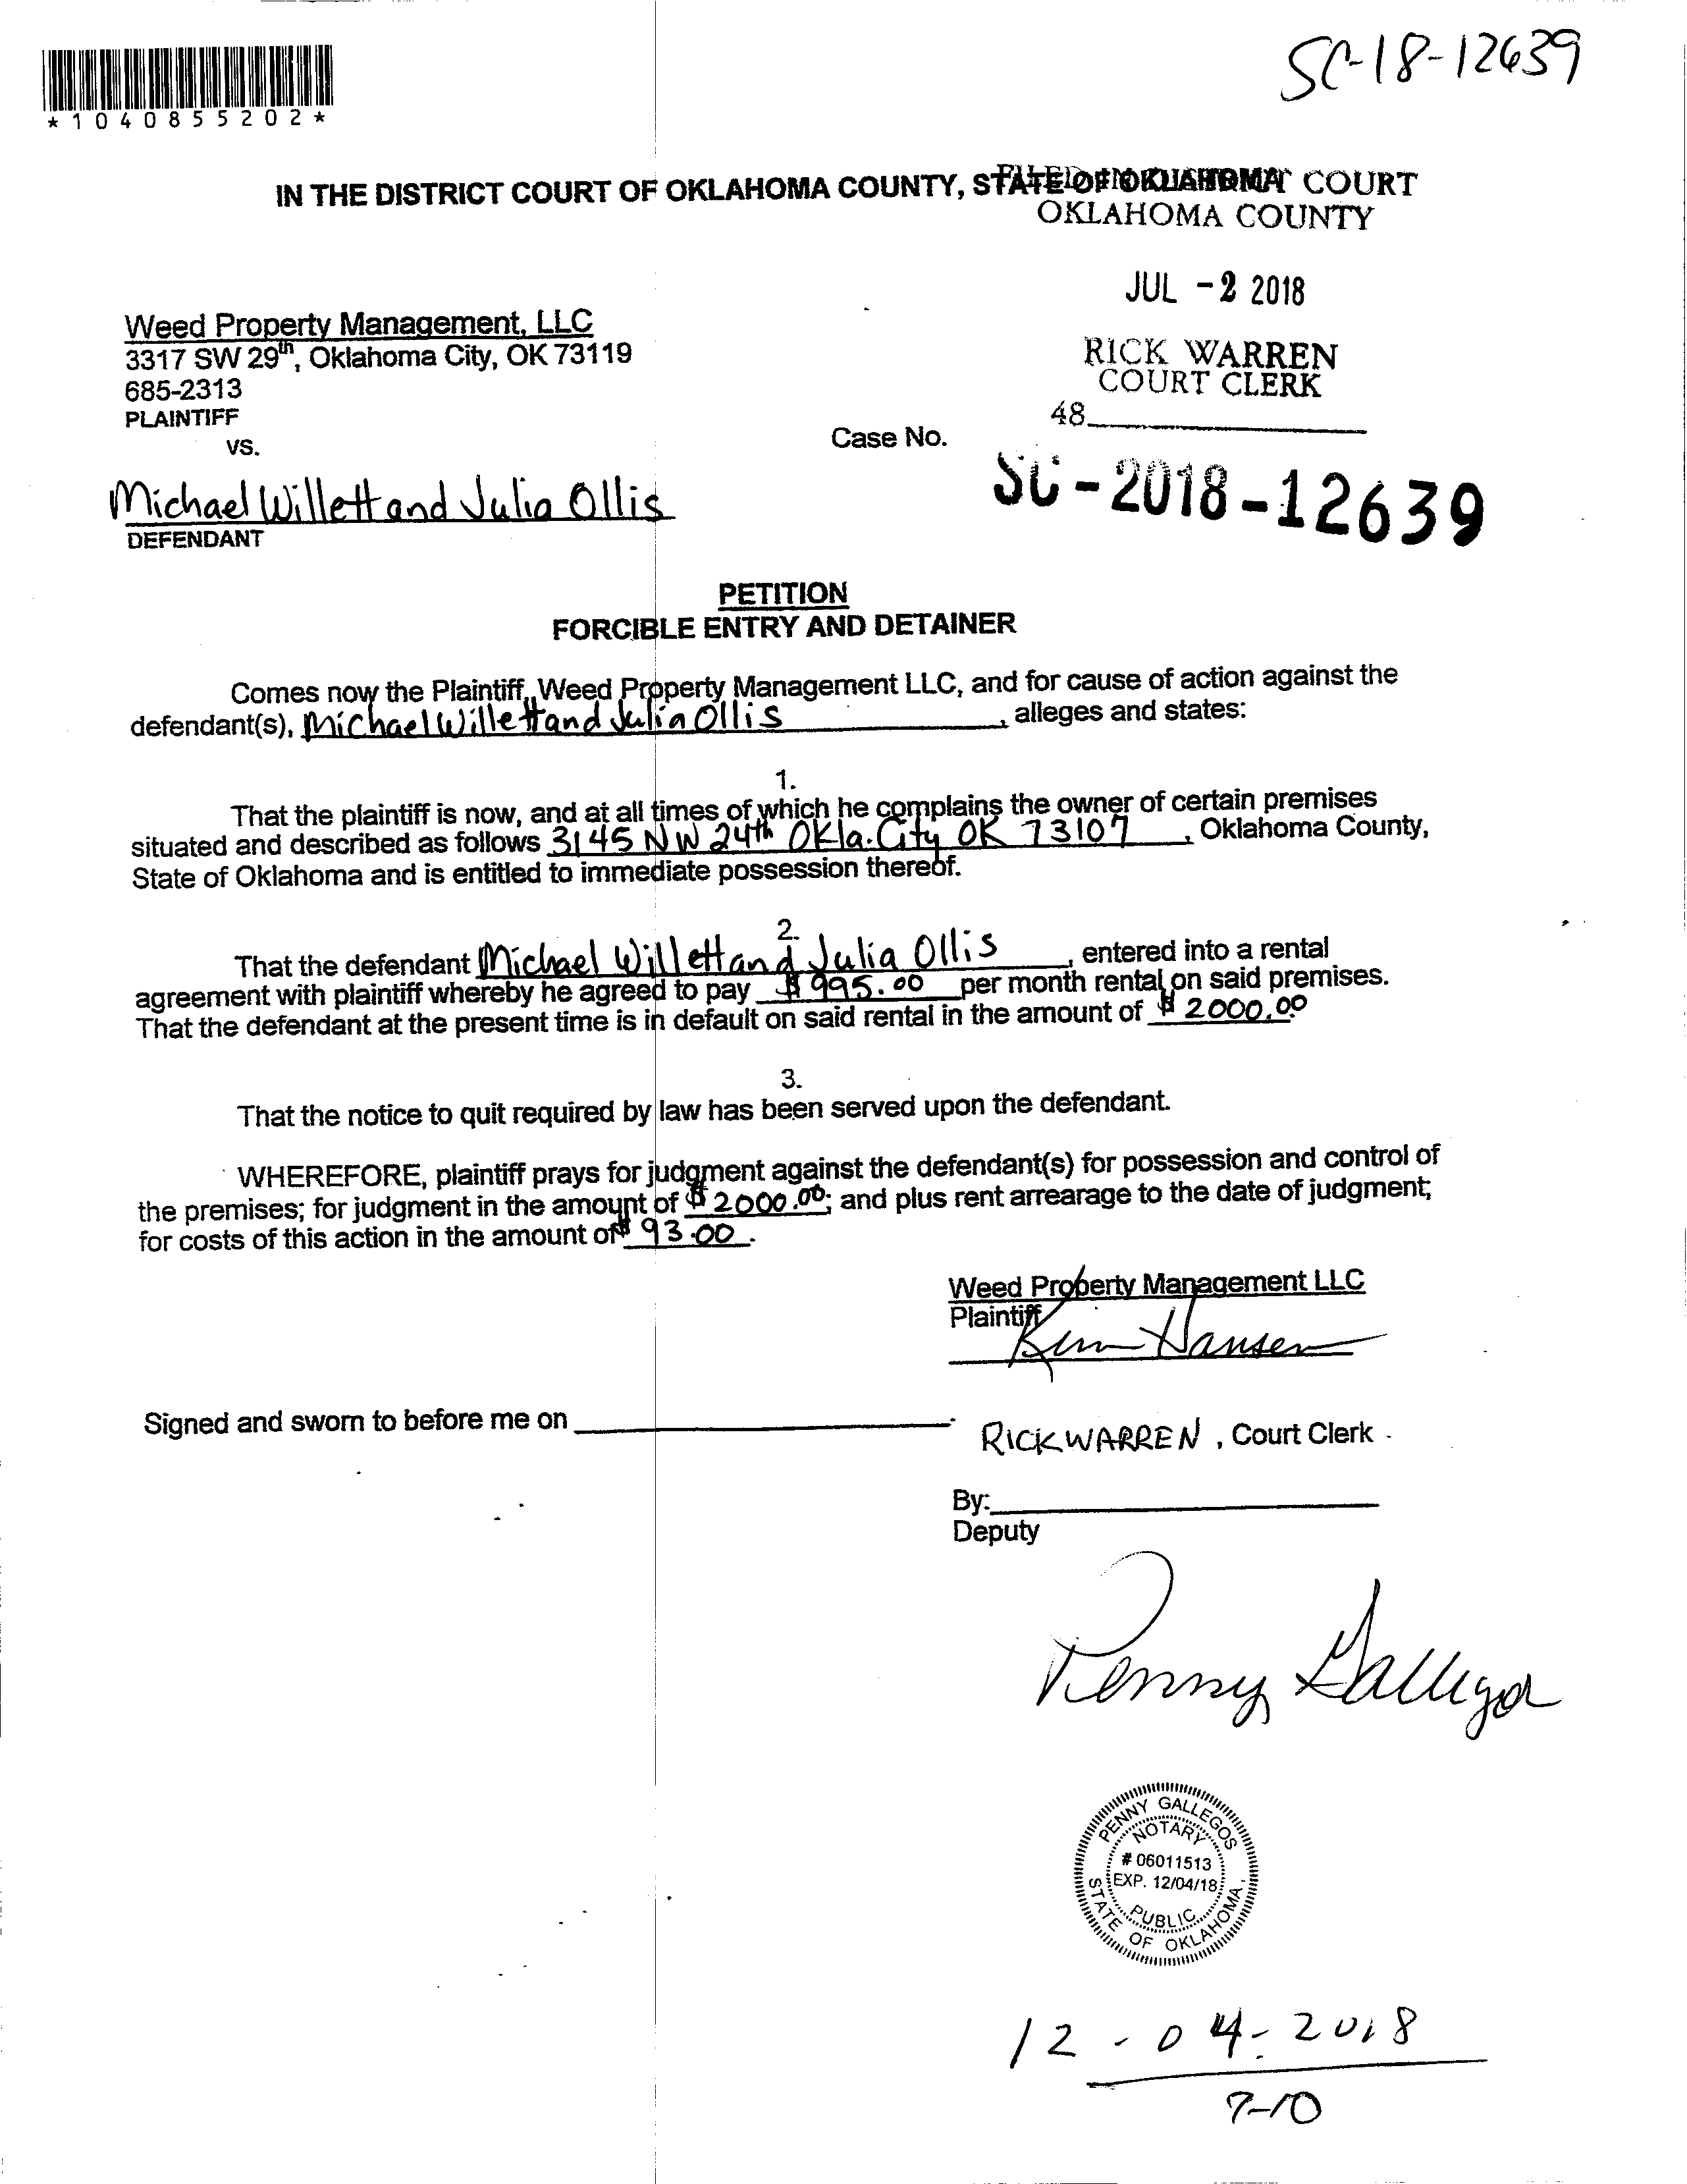 SC-18-12639
*1040855202*
IN THE DISTRICT COURT OF OKLAHOMA COUNTY, STATE OF OKLAHOMA
COURT
OKLAHOMA COUNTY
JUL -2 2018
Weed Property Management, LLC
3317 SW 29th, Oklahoma City, OK 73119
685-2313
PLAINTIFF
VS.
RICK WARREN
COURT CLERK
48
Case No.
SC-2018-12639
Michael Willett and Julia Ollis
DEFENDANT
PETITION
FORCIBLE ENTRY AND DETAINER
Comes now the Plaintiff, Weed Property Management LLC, and for cause of action against the
defendant(s), Michael Willett and Julia Ollis, alleges and states:
1.
That the plaintiff is now, and at all times of which he complains the owner of certain premises
situated and described as follows 3145 NW 24th Okla. City OK 73107, Oklahoma County,
State of Oklahoma and is entitled to immediate possession thereof.
2.
That the defendant Michael Willett and Julia Ollis, entered into a rental
agreement with plaintiff whereby he agreed to pay $995.00 per month rental on said premises.
That the defendant at the present time is in default on said rental in the amount of $2000.00
3.
That the notice to quit required by law has been served upon the defendant.
WHEREFORE, plaintiff prays for judgment against the defendant(s) for possession and control of
the premises; for judgment in the amount of $2000.00; and plus rent arrearage to the date of judgment;
for costs of this action in the amount of $93.00.
Weed Property Management LLC
Plaintiff
Kim Hansen
Signed and sworn to before me on
RICK WARREN, Court Clerk
By:
Deputy
Penny Gallegos
PENNY GALLEGOS
NOTARY
# 06011513
EXP. 12/04/18
PUBLIC
STATE OF OKLAHOMA
12-04-2018
7-10